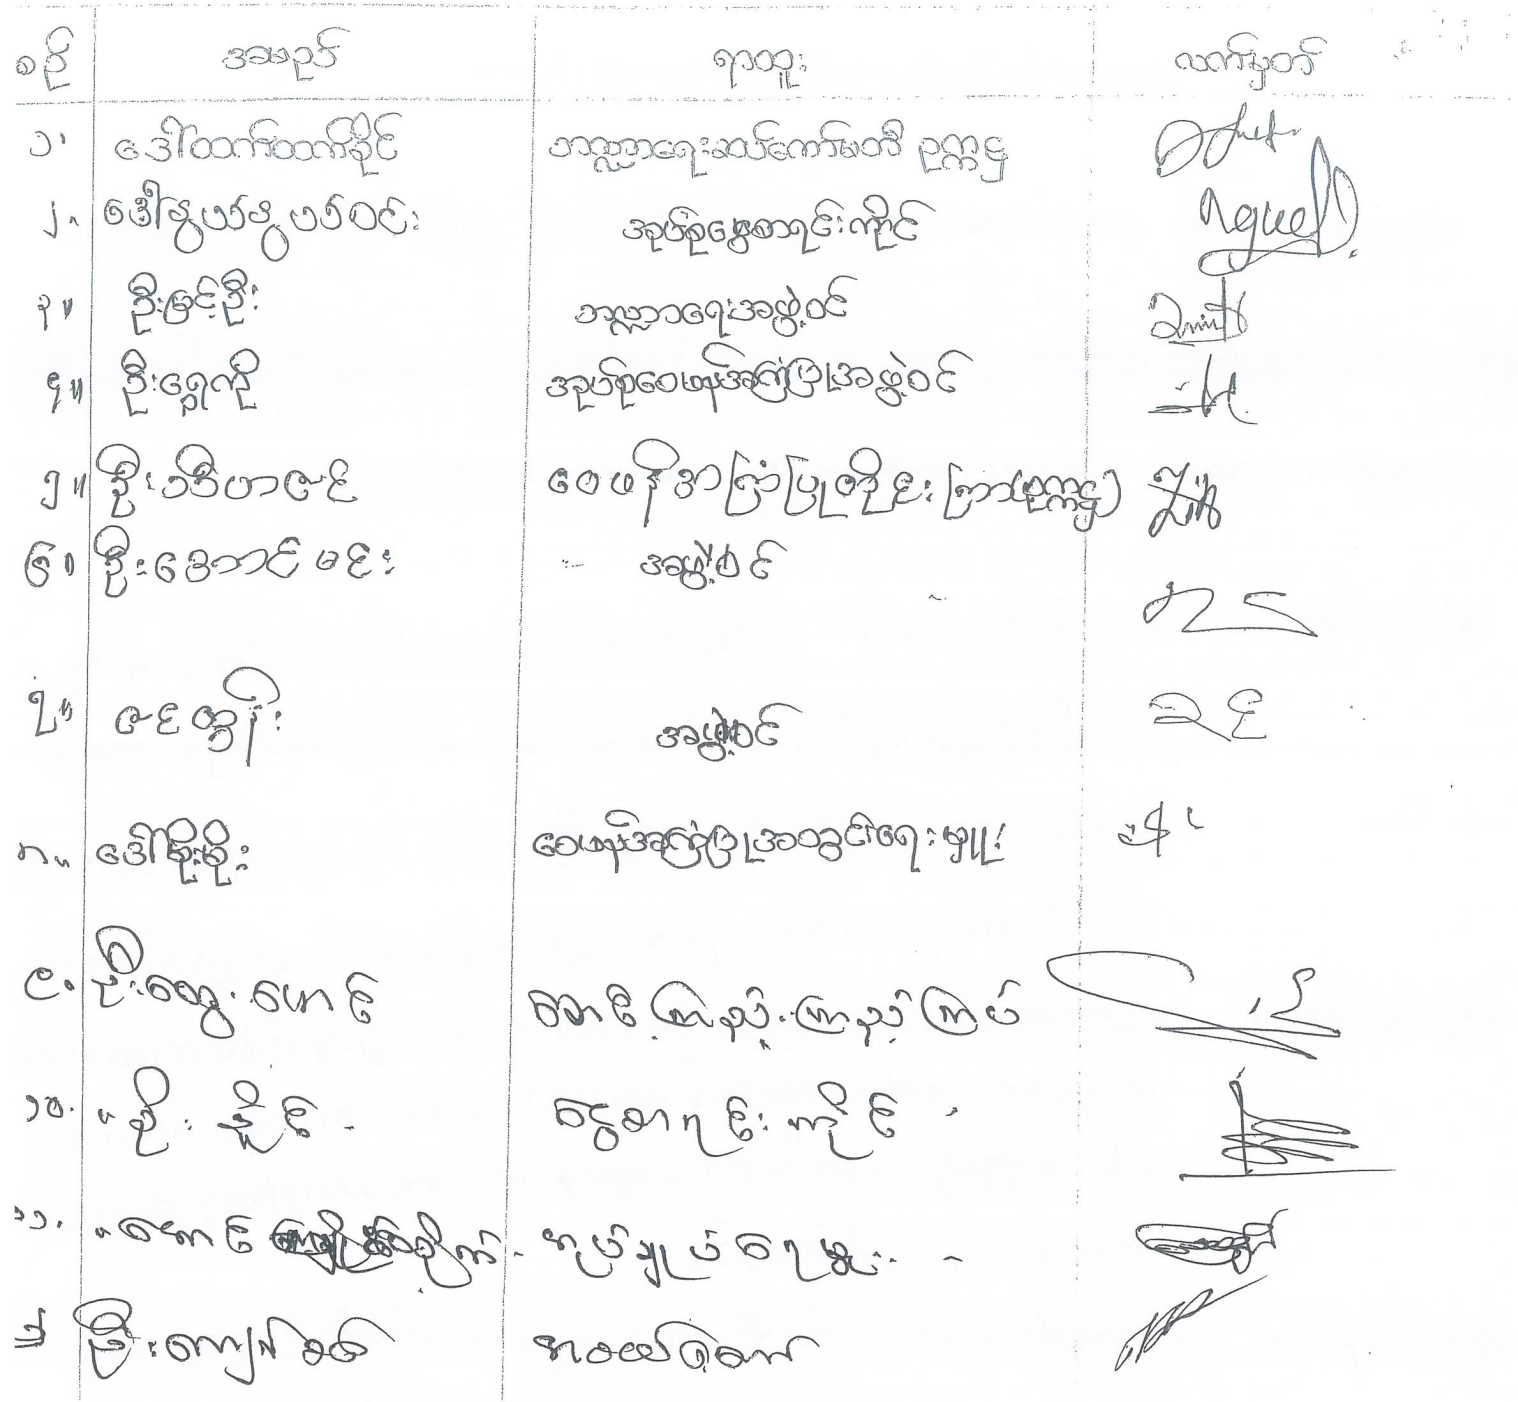 စဉ် အမည် ရာထူး လက်မှတ်
၁။ ဒေါ်ထက်ထက်ခိုင် ဘဏ္ဍာရေးဆပ်ကော်မတီ ဥက္ကဋ္ဌ
၂။ ဒေါ်နွယ်နွယ်ဝင်း အုပ်စုငွေစာရင်းကိုင်
၃။ ဦးမြင့်ဦး ဘဏ္ဍာရေးအဖွဲ့ဝင်
၄။ ဦးရွှေကို အုပ်စုဝေဖန်အကြံပြုအဖွဲ့ဝင်
၅။ ဦးသီဟဇင် ဝေဖန်အကြံပြုတိုင်းကြား(ဥက္ကဋ္ဌ)
၆။ ဦးအောင်မင်း အဖွဲ့ဝင်
၇။ ဇင်ထွန်း အဖွဲ့ဝင်
၈။ ဒေါ်မိုးမိုး ဝေဖန်အကြံပြုအတွင်းရေးမှူး
၉။ ဦးထွေးဟောင် စောင့်ကြည့်ကြည့်ကြပ်
၁၀။ ဦးနှိုင် ငွေစာရင်းကိုင်
၁၁။ အောင် အုပ်ချုပ်ရေးမှူး
၁၂ ဦးကျော်ခင်